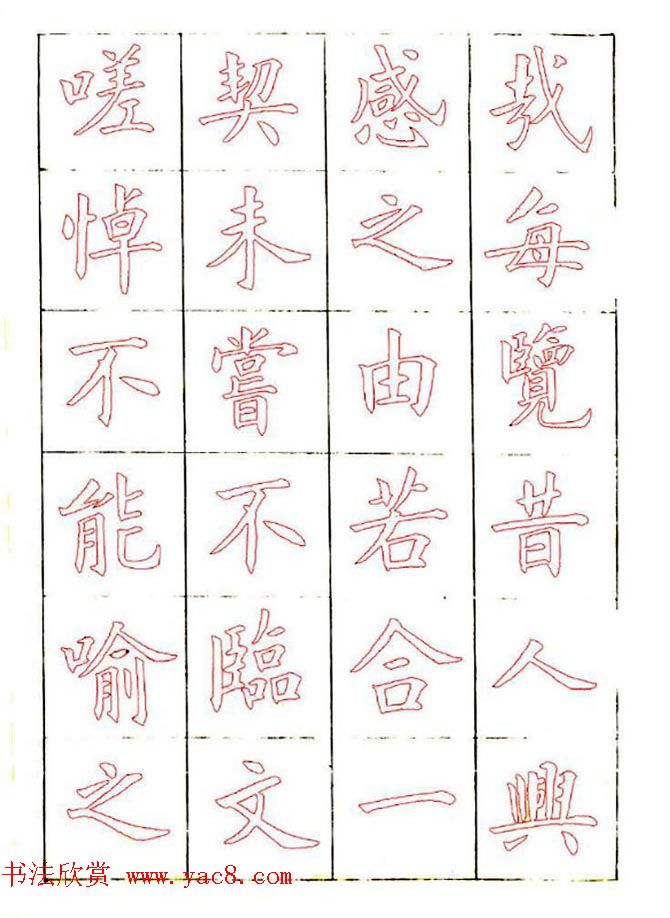 哉每覽昔人興
感之由若合一
契未嘗不臨文
嗟悼不能喻之
书法欣赏 www.yac8.com